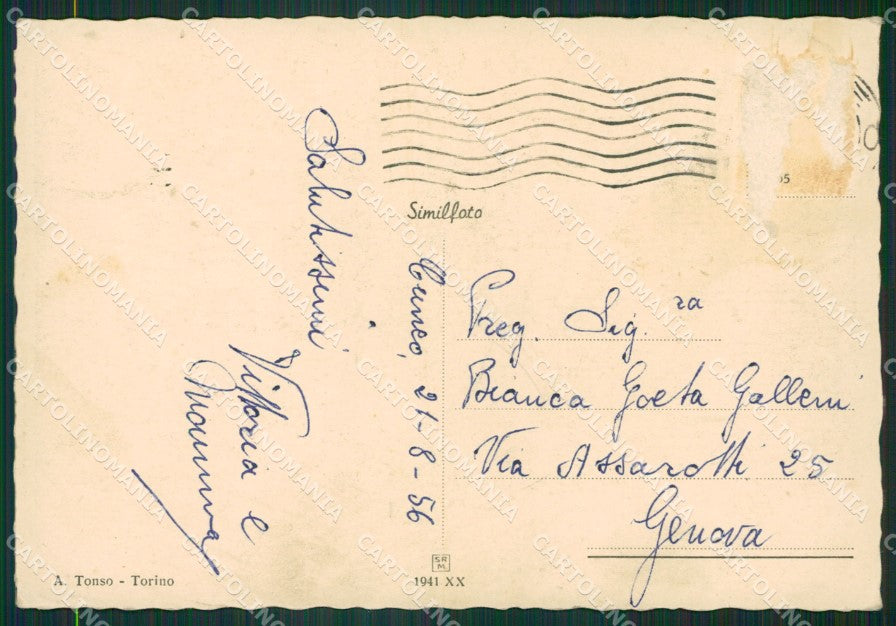 Salutissimi
Vittoria e
Mamma
Cuneo, 21-8-56
Similfoto
Preg. Sig.ra
Bianca Goeta Galleni
Via Assarotti 25
Genova
A. Tonso - Torino
SR
M.
1941 XX
CARTOLINOMANIA